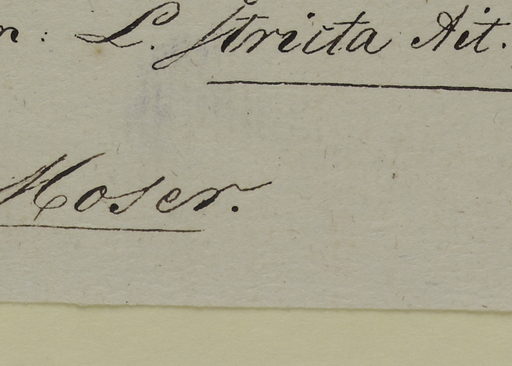 n: L. stricta Ait.
Moser.